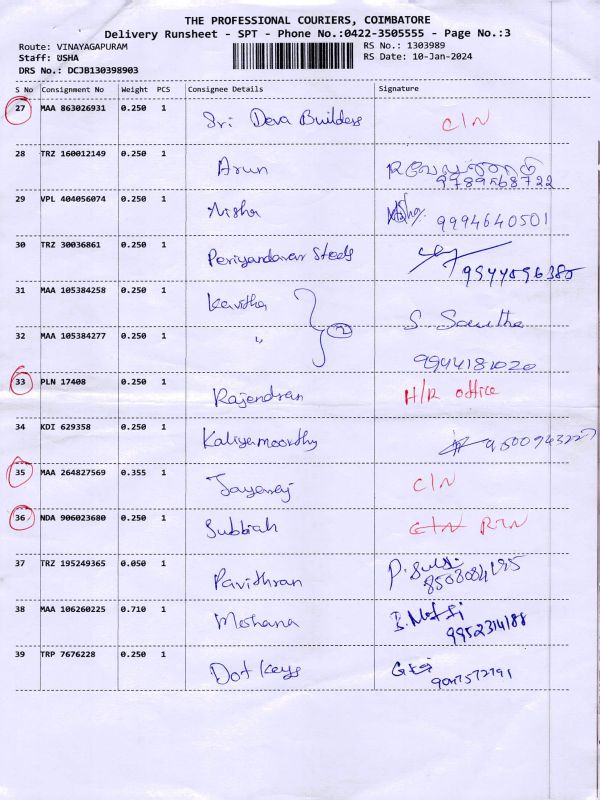 THE PROFESSIONAL COURIERS, COIMBATORE
Delivery Runsheet - SPT - Phone No.:0422-3505555 - Page No.:3
Route: VINAYAGAPURAM RS No.: 1303989
Staff: USHA RS Date: 10-Jan-2024
DRS No.: DCJB130398903
S No Consignment No Weight PCS Consignee Details Signature
27 MAA 863026931 0.250 1 Sri Deva Builders C/N
28 TRZ 160012149 0.250 1 Arun
9789568722
29 VPL 404056074 0.250 1 Nisha 9994640501
30 TRZ 30036861 0.250 1 Periyandavar Steels
31 MAA 105384258 0.250 1 Kavitha
32 MAA 105384277 0.250 1 " 2 S. Savitha
9944181020
33 PLN 17408 0.250 1 Rajendran H/R office
34 KDI 629358 0.250 1 Kaliyamoorthy 9500943227
35 MAA 264827569 0.355 1 Jayaraj C/N
36 NDA 906023680 0.250 1 Subbiah C/N R/N
37 TRZ 195249365 0.050 1 Pavithran
38 MAA 106260225 0.710 1 Meshana
9952314188
39 TRP 7676228 0.250 1 Dot Keys